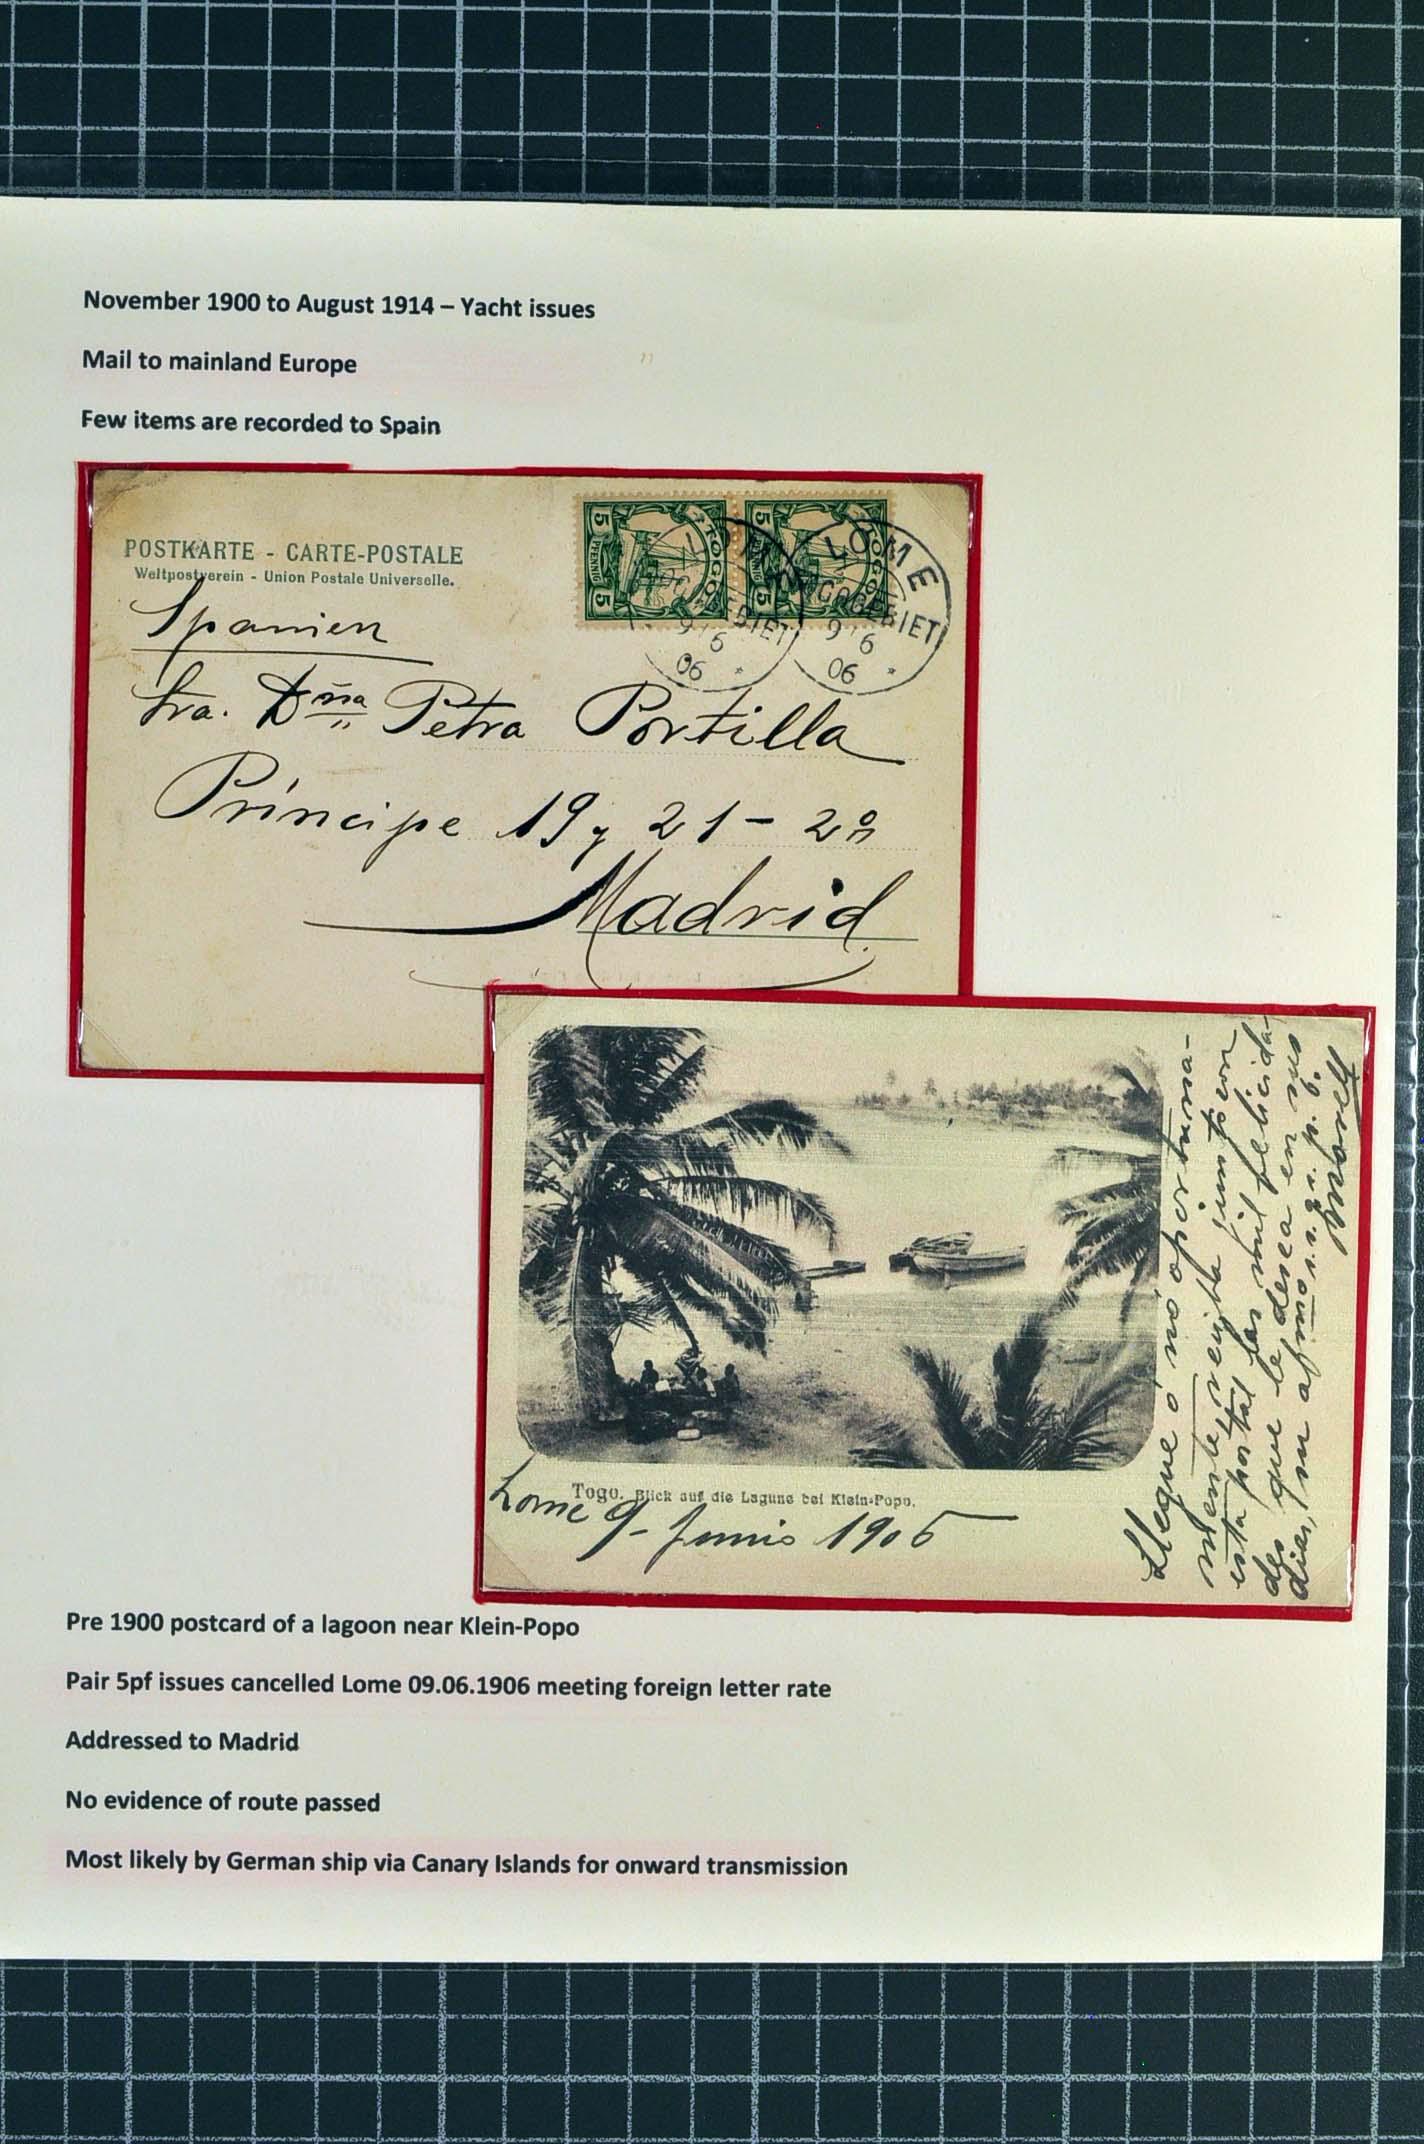 November 1900 to August 1914 – Yacht issues
Mail to mainland Europe
Few items are recorded to Spain
POSTKARTE - CARTE-POSTALE
Weltpostverein - Union Postale Universelle.
5 PFENNIG 5
TOGO
5 PFENNIG 5
TOGO
LOME
TOGOGEBIET
9 6
06 *
LOME
TOGOGEBIET
9 6
06 *
Spanien
Sra. Dña Petra Portilla
Príncipe 19 y 21 - 2º
Madrid
Togo. Blick auf die Lagune bei Klein-Popo.
Lome 9 - Junio 1906
Llegue ó no oportuna-
mente reciba junto con
esta postal las mil felicida-
des que le desea en sus
dias, su afmo. s.s.q.s.p.b.
Pre 1900 postcard of a lagoon near Klein-Popo
Pair 5pf issues cancelled Lome 09.06.1906 meeting foreign letter rate
Addressed to Madrid
No evidence of route passed
Most likely by German ship via Canary Islands for onward transmission